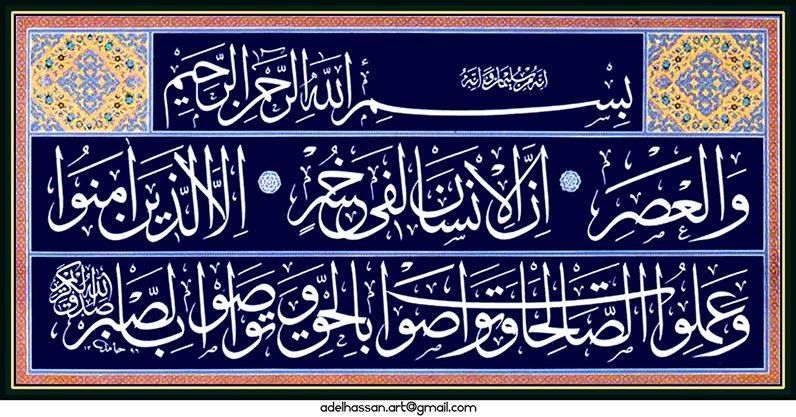 انه من سليمان وانه
بسم الله الرحمن الرحيم
والعصر ان الانسان لفى خسر الا الذين امنوا
وعملوا الصالحات وتواصوا بالحق وتواصوا بالصبر
صدق الله الكريم
adelhassan.art@gmail.com